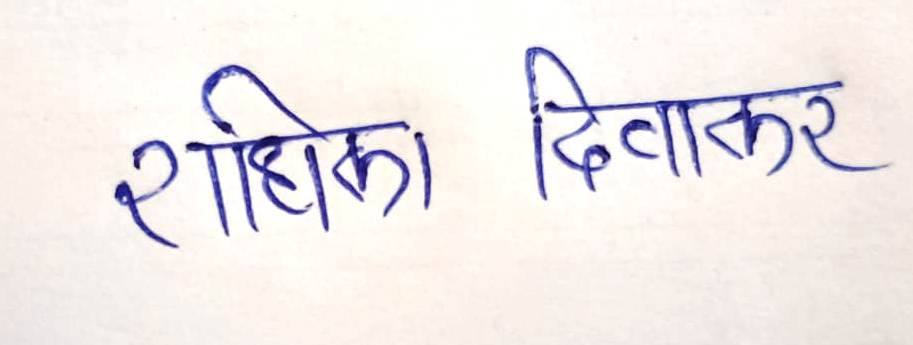 राधिका दिवाकर